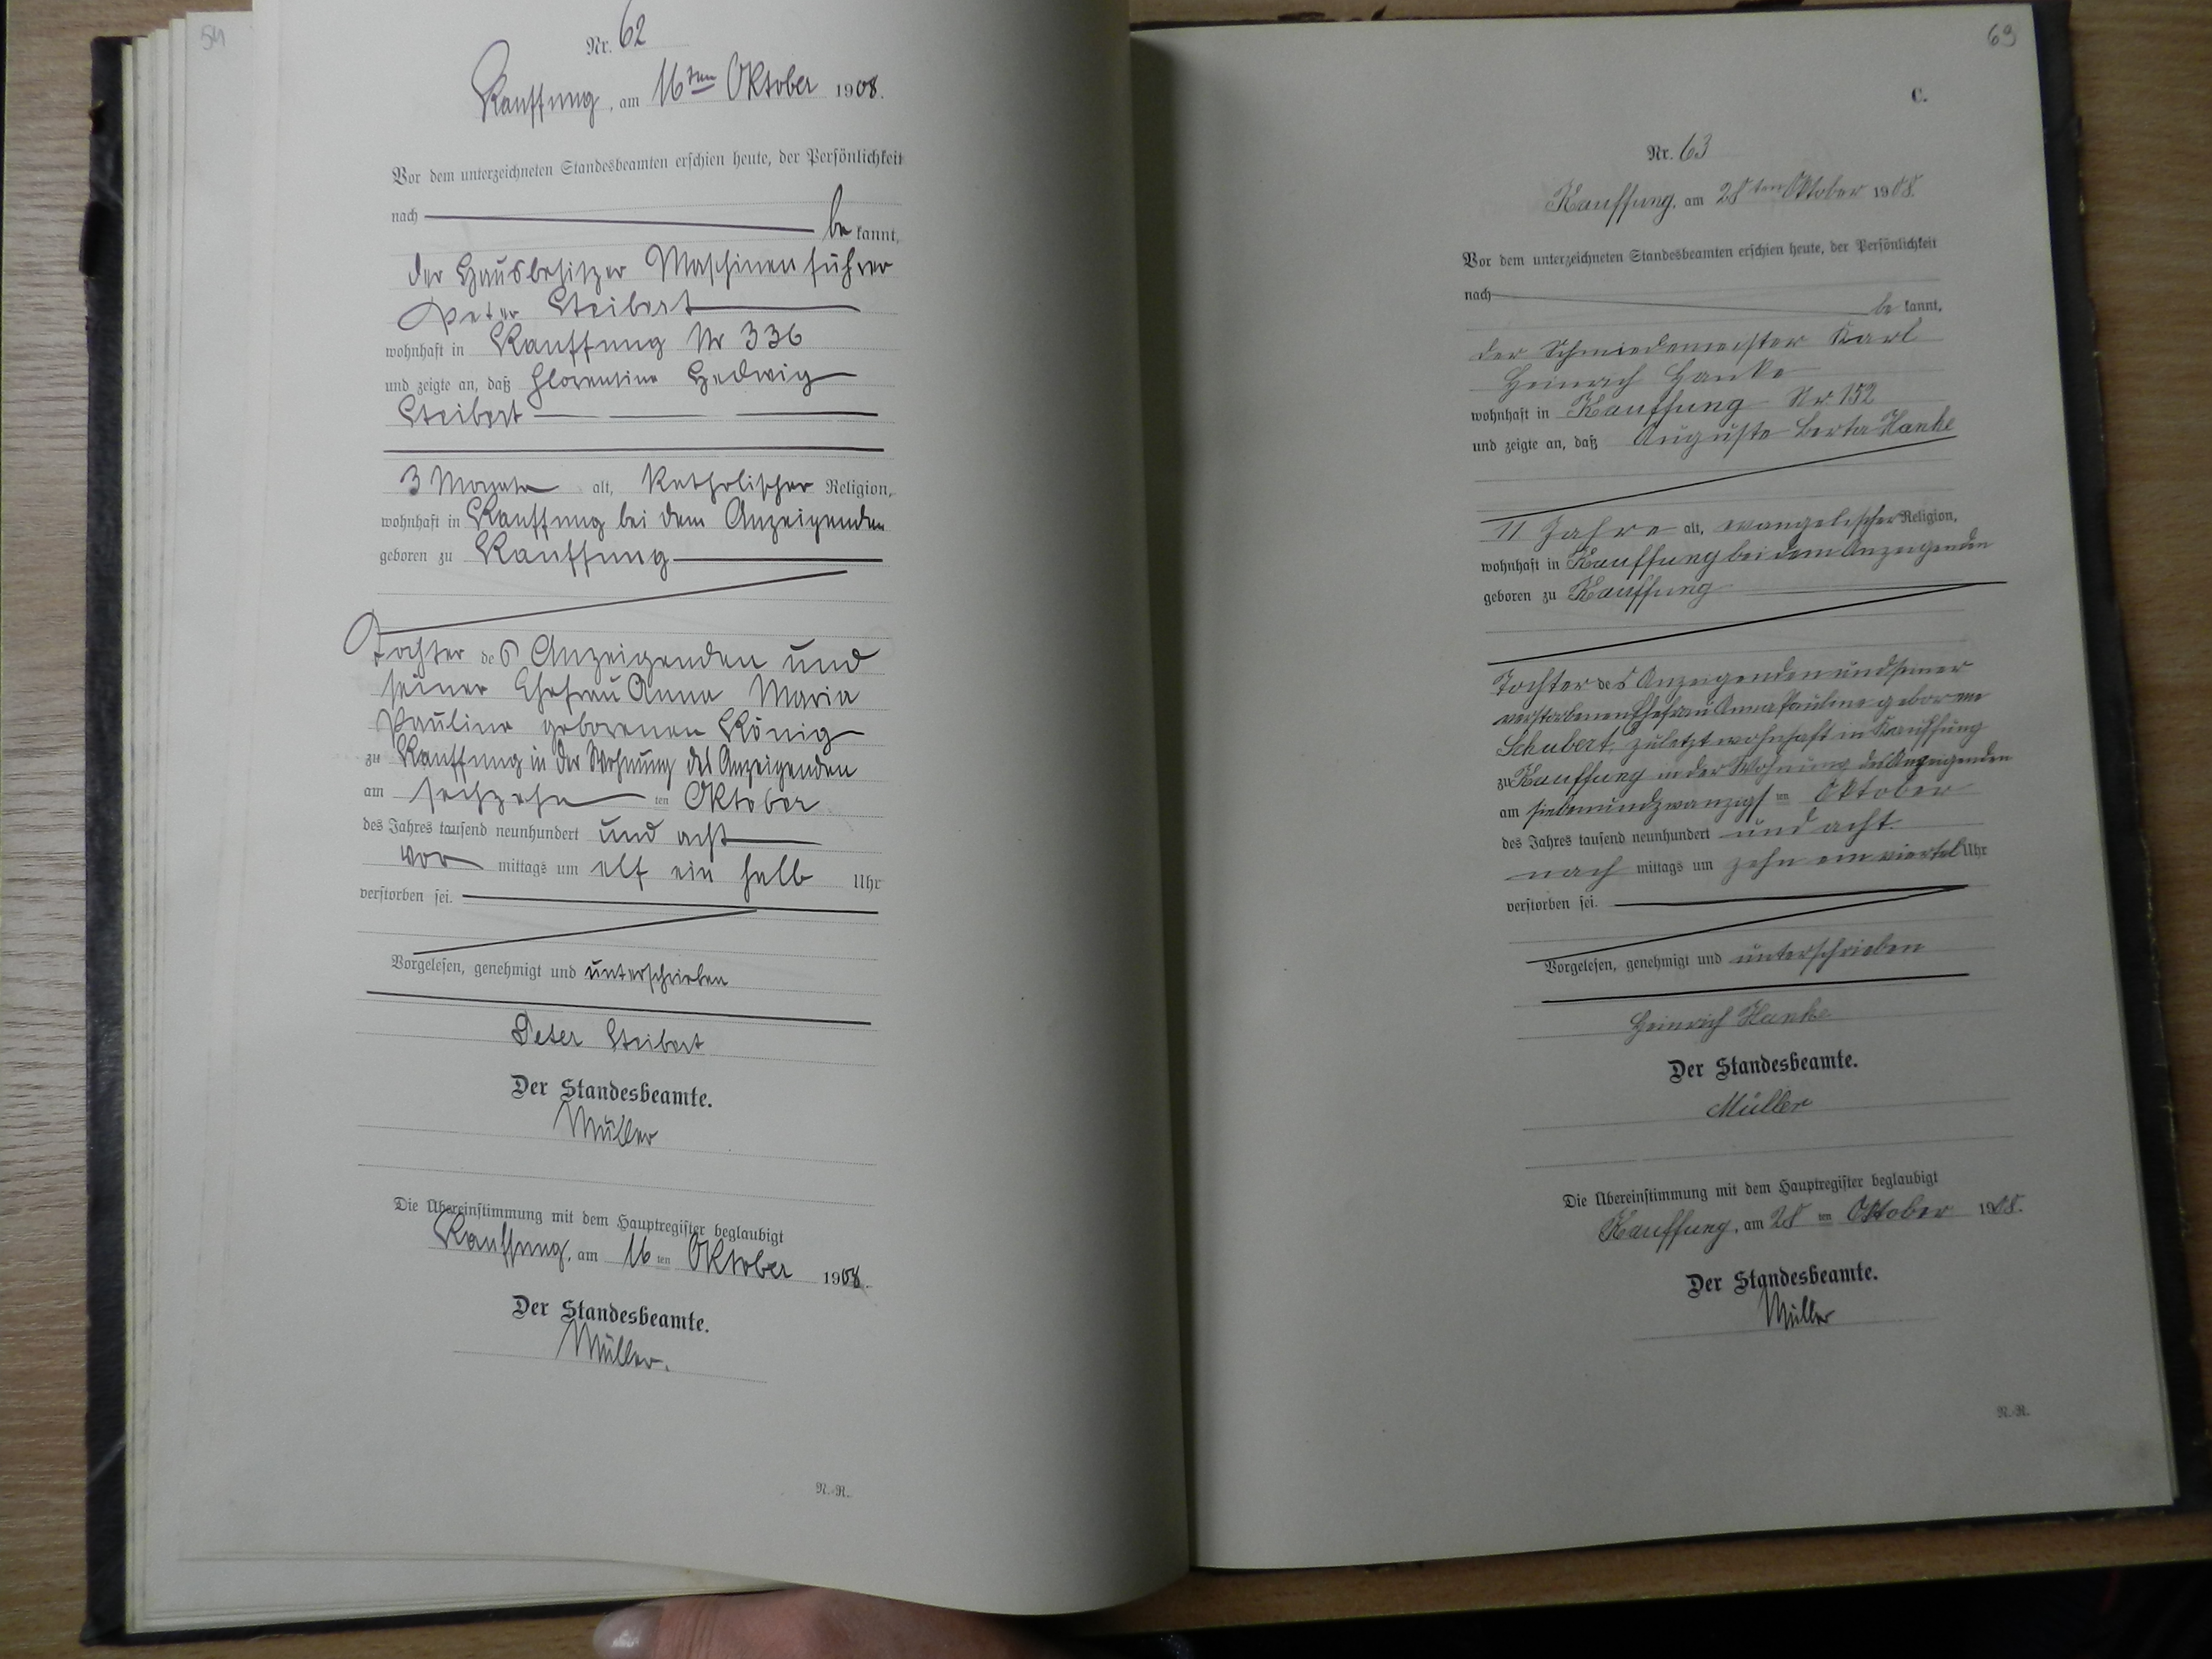 54
Nr. 62
Kauffung, am 16ten Oktober 1908.
Vor dem unterzeichneten Standesbeamten erschien heute, der Persönlichkeit
nach be kannt,
der Hausbesitzer Maschinenführer
Peter Steibert
wohnhaft in Kauffung Nr 336
und zeigte an, daß Florentine Hedwig
Steibert
3 Monate alt, katholischer Religion,
wohnhaft in Kauffung bei dem Anzeigenden
geboren zu Kauffung
Tochter des Anzeigenden und
seiner Ehefrau Anna Maria
Pauline geborenen König
zu Kauffung in der Wohnung des Anzeigenden
am sechzehn ten Oktober
des Jahres tausend neunhundert und acht
vor mittags um elf ein halb Uhr
verstorben sei.
Vorgelesen, genehmigt und unterschrieben
Peter Steibert
Der Standesbeamte.
Müller
Die Übereinstimmung mit dem Hauptregister beglaubigt
Kauffung, am 16 ten Oktober 1908.
Der Standesbeamte.
Müller.
N.-R.
69
C.
Nr. 63
Kauffung, am 28ten Oktober 1908.
Vor dem unterzeichneten Standesbeamten erschien heute, der Persönlichkeit
nach be kannt,
der Schmiedemeister Karl
Heinrich Hanke
wohnhaft in Kauffung Nr. 152
und zeigte an, daß Auguste Berta Hanke
11 Jahre alt, evangelischer Religion,
wohnhaft in Kauffung bei dem Anzeigenden
geboren zu Kauffung
Tochter des Anzeigenden und seiner
verstorbenen Ehefrau Anna Pauline geborene
Schubert, zuletzt wohnhaft in Kauffung
zu Kauffung in der Wohnung des Anzeigenden
am siebenundzwanzigs ten Oktober
des Jahres tausend neunhundert und acht
nach mittags um zehn ein viertel Uhr
verstorben sei.
Vorgelesen, genehmigt und unterschrieben
Heinrich Hanke
Der Standesbeamte.
Müller
Die Übereinstimmung mit dem Hauptregister beglaubigt
Kauffung, am 28 ten Oktober 1908.
Der Standesbeamte.
Müller
N.-R.